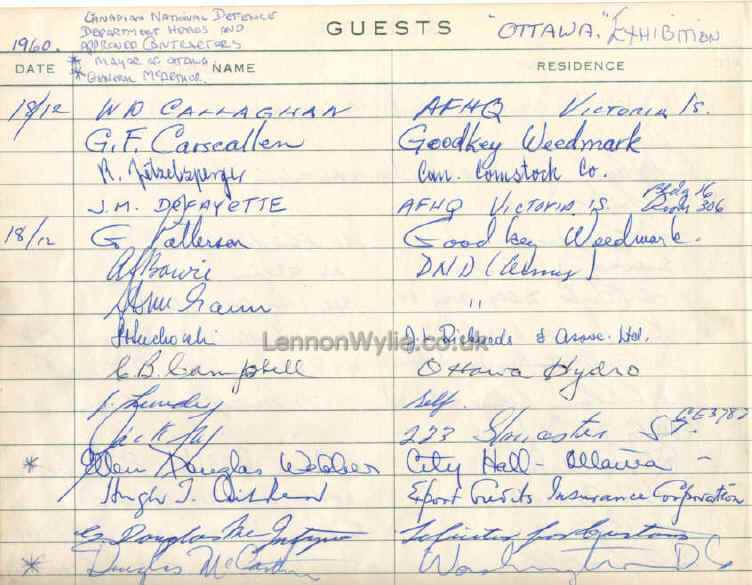 CANADIAN NATIONAL DEFENCE
DEPARTMENT HEADS AND
APPROVED CONTRACTORS
* MAYOR OF OTTAWA
* GENERAL MCARTHUR.
1960. GUESTS "OTTAWA." EXHIBITION
DATE NAME RESIDENCE
18/12 W D CALLAGHAN AFHQ VICTORIA IS.
G. F. Carscallen Goodkey Weedmark
R. Can. Comstock Co.
J. M. DEFAYETTE AFHQ VICTORIA IS. Bldg 16 Room 306
18/12 G Patterson Goodkey Weedmark.
Bowie DND (Army)
"
LennonWylie.co.uk
J. L. Richards & Assoc. Ltd.
C. B. Campbell Ottawa Hydro
self.
Jack 223 Gloucester St. CE3782
* Ellen Douglas Webber City Hall - Ottawa -
Hugh T. Export Credits Insurance Corporation
Douglas McIntyre
* Douglas Washington DC